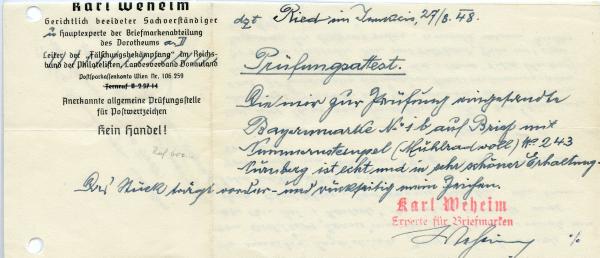 Karl Weheim
Gerichtlich beeideter Sachverständiger
Hauptexperte der Briefmarkenabteilung
des Dorotheums
Leiter der "Fälschungsbekämpfung" im Reichs-
bund der Philatelisten, Landesverband Donauland
Postsparkassenkonto Wien Nr. 106.259
Fernruf B 2 97-14
Anerkannte allgemeine Prüfungsstelle
für Postwertzeichen
Kein Handel!
dzt Ried im Innkreis, 27/8.48.
Prüfungsattest.
Die mir zur Prüfung eingesandte
Bayernmarke No 1 b auf Brief mit
Nummernstempel (Mühlrad voll) No 243
Nürnberg ist echt und in sehr schöner Erhaltung.
Das Stück trägt vorder- und rückseitig mein Zeichen.
Karl Weheim
Experte für Briefmarken
Weheim